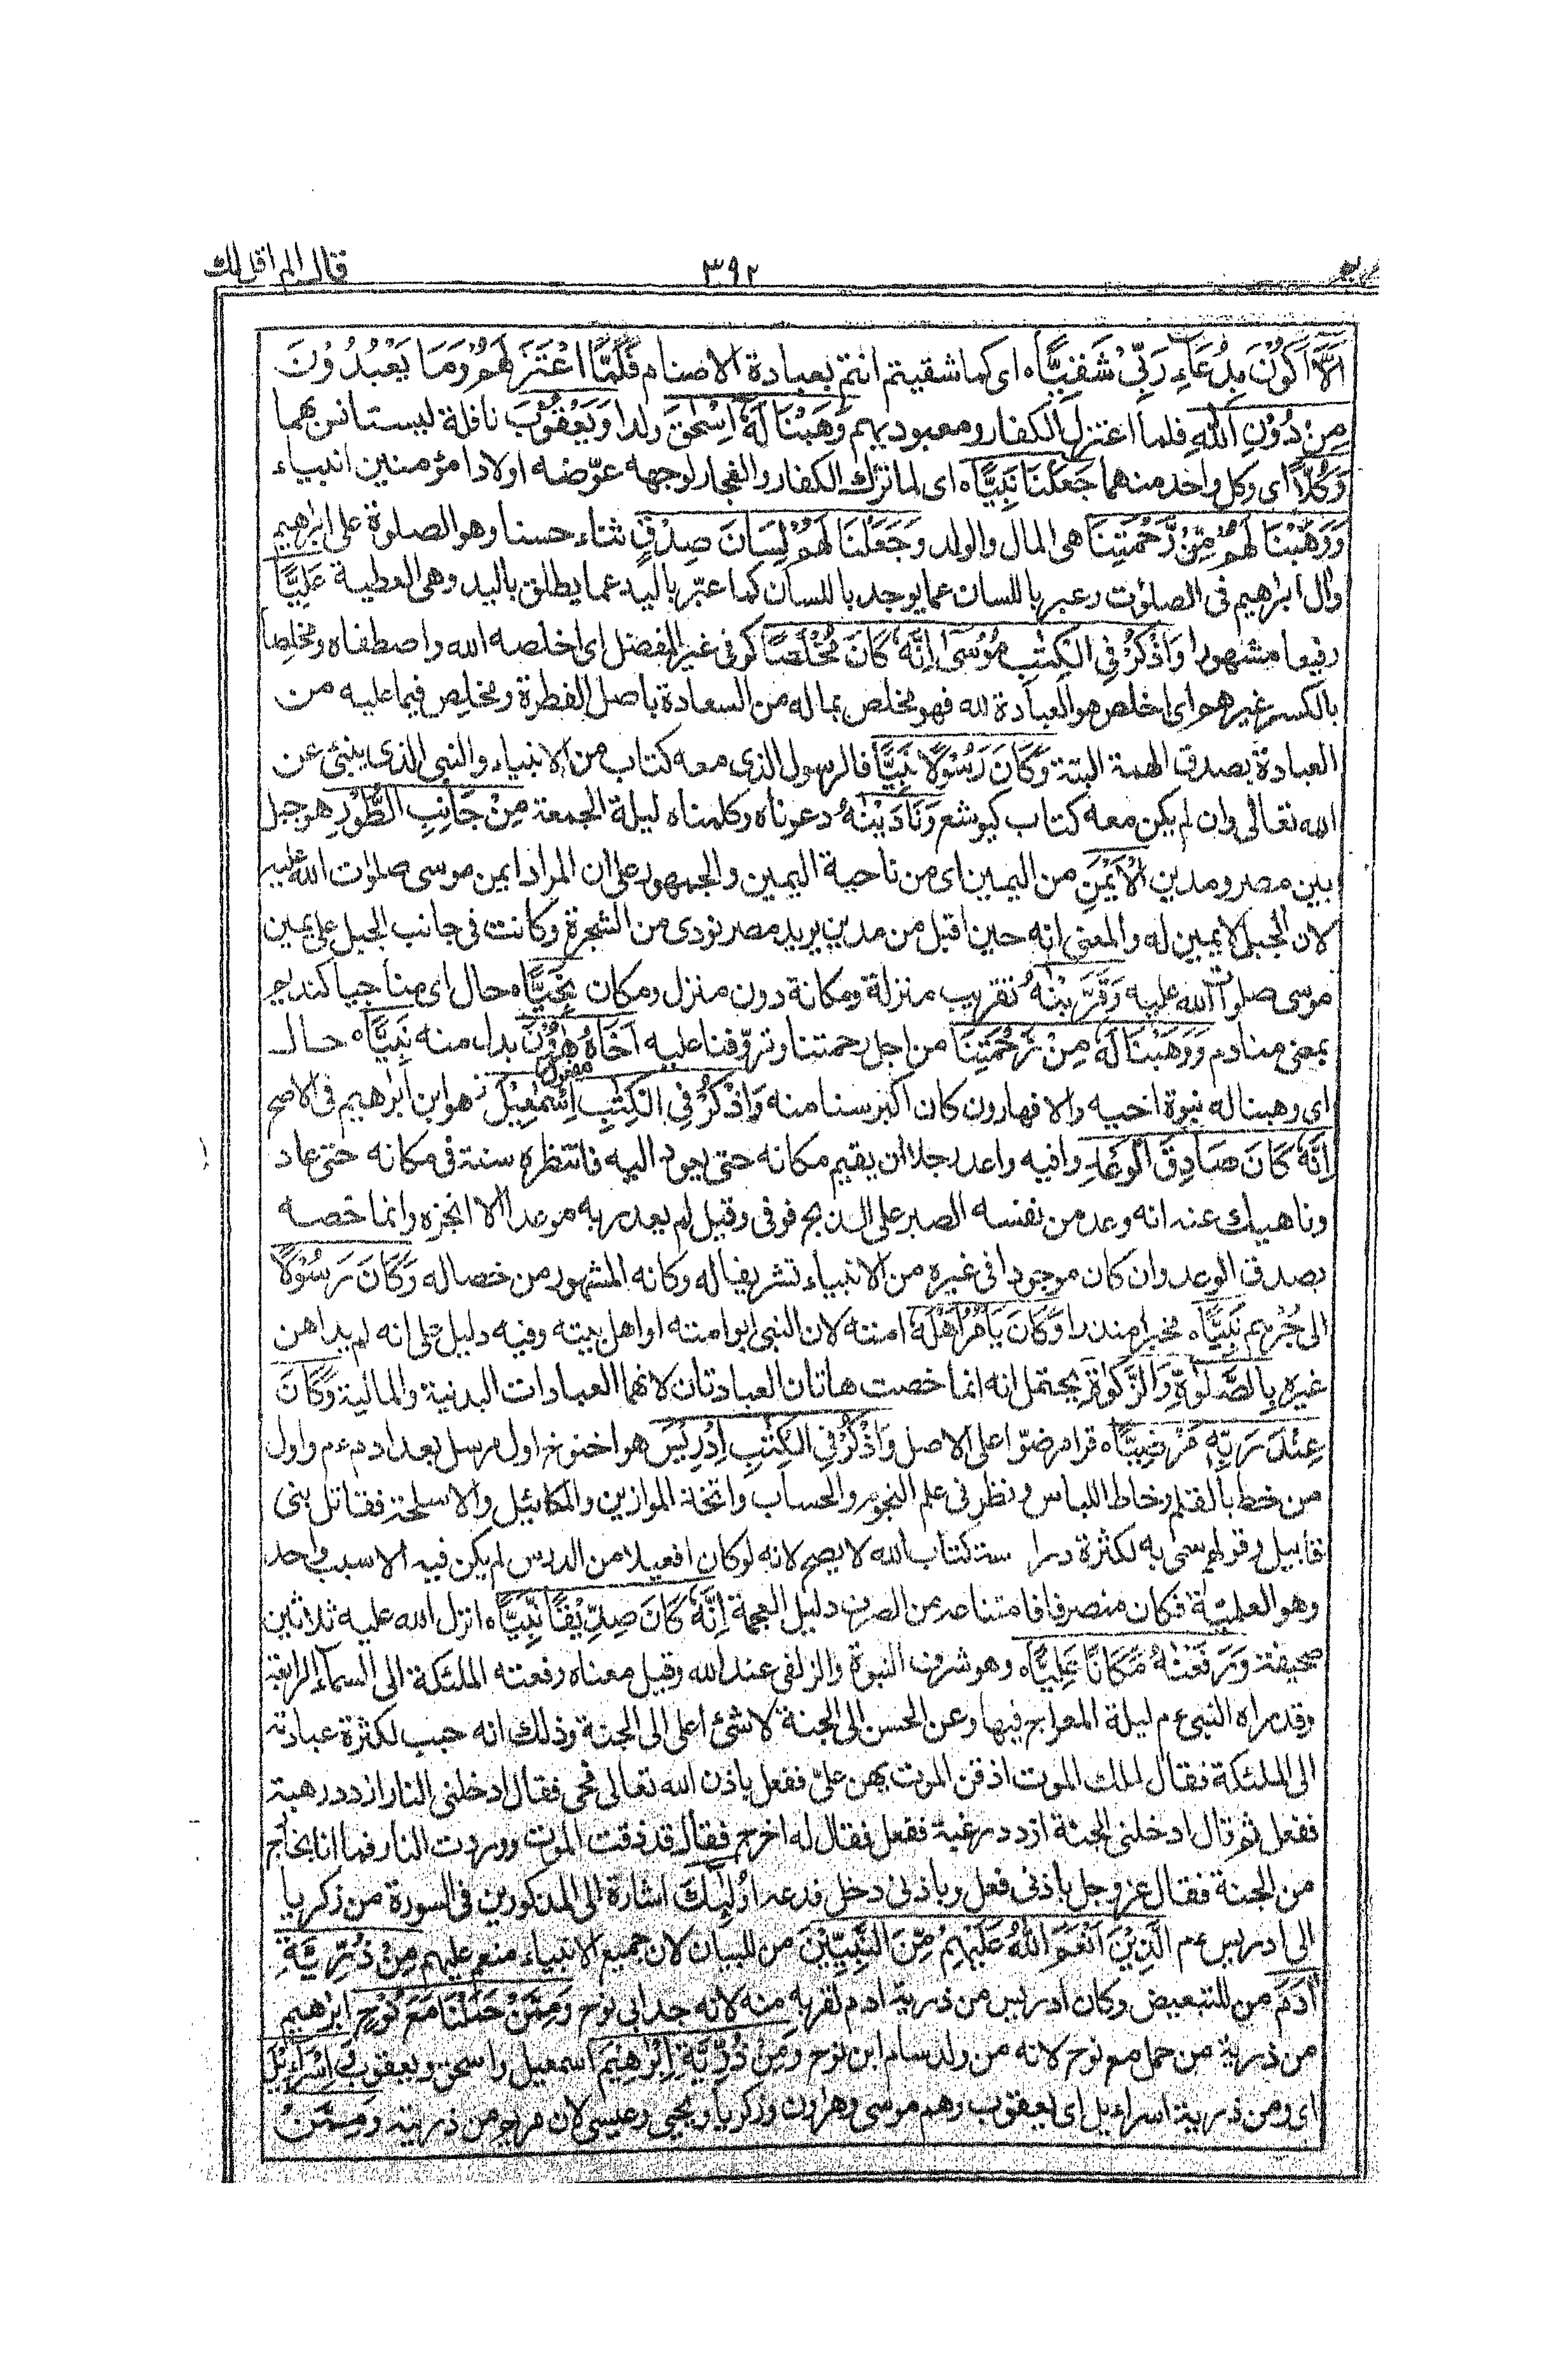 قال الم اقل لك
٣٩٢
اَلَّآ اَكُوْنَ بِدُعَآءِ رَبِّيْ شَقِيًّا ه اى كما شقيتم انتم بعبادة الاصنام فَلَمَّا اعْتَزَلَهُمْ وَمَا يَعْبُدُوْنَ
مِنْ دُوْنِ اللّٰهِ فلما اعتزل الكفار ومعبوديهم وَهَبْنَا لَهٗٓ اِسْحٰقَ ولدا وَيَعْقُوْبَ نافلة ليستانس بهما
وَكُلًّا اى وكل واحد منهما جَعَلْنَا نَبِيًّا ه اى لما ترك الكفار والفجار لوجهه عوّضه اولادا مؤمنين انبياء
وَوَهَبْنَا لَهُمْ مِّنْ رَّحْمَتِنَا هى المال والولد وَجَعَلْنَا لَهُمْ لِسَانَ صِدْقٍ ثناء حسنا وهو الصلوة على ابرٰهيم
وال ابرٰهيم فى الصلوٰت وعبر باللسان عما يوجد باللسان كما عبّر باليد عما يطلق باليد وهى العطية عَلِيًّا
رفيعا مشهورا وَاذْكُرْ فِي الْكِتٰبِ مُوْسٰٓى اِنَّهٗ كَانَ مُخْلَصًا كوفى غير المفضل اى اخلصه الله واصطفاه ومخلِصا
بالكسر غيرهم اى اخلص هو العبادة لله فهو مخلص بما له من السعادة باصل الفطرة ومخلِص فيما عليه من
العبادة بصدق الهمة البتة وَكَانَ رَسُوْلًا نَّبِيًّا فالرسول الذى معه كتاب من الانبياء والنبى الذى ينبئ عن
الله تعالى وان لم يكن معه كتاب كيوشع وَنَادَيْنٰهُ دعوناه وكلمناه ليلة الجمعة مِنْ جَانِبِ الطُّوْرِ هو جبل
بين مصر ومدين الْاَيْمَنِ من اليمين اى من ناحية اليمين والجمهور على ان المراد ايمن موسى صلوٰت الله عليه
لان الجبل لا يمين له والمعنى انه حين اقبل من مدين يريد مصر نودى من الشجرة وكانت فى جانب الجبل على يمين
موسى صلوات الله عليه وَقَرَّبْنٰهُ تقريب منزلة ومكانة دون منزل ومكان نَجِيًّا ه حال اى مناجيا كنديم
بمعنى منادم وَوَهَبْنَا لَهٗ مِنْ رَّحْمَتِنَآ من اجل رحمتنا وترؤفنا عليه اَخَاهُ هٰرُوْنَ بدل منه نَبِيًّا ه حال
مفعول
اى وهبنا له نبوة اخيه والا فهارون كان اكبر سنا منه وَاذْكُرْ فِي الْكِتٰبِ اِسْمٰعِيْلَ هو ابن ابرٰهيم فى الاصح
اِنَّهٗ كَانَ صَادِقَ الْوَعْدِ وافيه واعد رجلا ان يقيم مكانه حتى يعود اليه فانتظره سنة فى مكانه حتى عاد
وناهيك عنه انه وعد من نفسه الصبر على الذبح فوفى وقيل لم يعد ربه موعدا الا انجزه وانما خصه
بصدق الوعد وان كان موجودا فى غيره من الانبياء تشريفا له وكانه المشهور من خصاله وَكَانَ رَسُوْلًا
الى جُرْهم نَّبِيًّا ه مخبرا منذرا وَكَانَ يَاْمُرُ اَهْلَهٗ امته لان النبى ابو امته او اهل بيته وفيه دليل على انه لم يداهن
غيره بِالصَّلٰوةِ وَالزَّكٰوةِ يحتمل انه انما خصت هاتان العبادتان لانهما العبادات البدنية والمالية وَكَانَ
عِنْدَ رَبِّهٖ مَرْضِيًّا ه قرا مرضوّا على الاصل وَاذْكُرْ فِي الْكِتٰبِ اِدْرِيْسَ هو اخنوخ اول مرسل بعد ادم ءم واول
من خط بالقلم وخاط اللباس ونظر فى علم النجوم والحساب واتخذ الموازين والمكائيل والاسلحة فقاتل بنى
قابيل وقولهم سمى به لكثرة درا ستة كتاب الله لا يصح لانه لو كان افعيلا من الدرس لم يكن فيه الا سبب واحد
وهو العلميّة فكان منصرفا فامتناعه من الصرف دليل العجمة اِنَّهٗ كَانَ صِدِّيْقًا نَّبِيًّا ه انزل الله عليه ثلاثين
صحيفة وَرَفَعْنٰهُ مَكَانًا عَلِيًّا ه وهو شرف النبوة والزلفى عند الله وقيل معناه رفعته الملٰئكة الى السماء الرابعة
وقد راه النبى ءم ليلة المعراج فيها وعن الحسن الى الجنة لا شئ اعلى الى الجنة وذلك انه حبب لكثرة عبادته
الى الملٰئكة فقال لملك الموت اذقنى الموت يهن علىّ ففعل باذن الله تعالى فحى فقال ادخلنى النار ازدد رهبة
ففعل ثم قال ادخلنى الجنة ازدد رغبة ففعل فقال له اخرج فقال قد ذقت الموت ووردت النار فما انا بخارج
من الجنة فقال عز وجل باذنى فعل وباذنى دخل فدعه اُولٰٓئِكَ اشارة الى المذكورين فى السورة من زكريا
الى ادريس ءم الَّذِيْنَ اَنْعَمَ اللّٰهُ عَلَيْهِمْ مِّنَ النَّبِيّٖنَ من للبيان لان جميع الانبياء منعم عليهم مِنْ ذُرِّيَّةِ
اٰدَمَ من للتبعيض وكان ادريس من ذرية ادم لقربه منه لانه جد ابى نوح وَمِمَّنْ حَمَلْنَا مَعَ نُوْحٍ ابرٰهيم
من ذرية من حمل مع نوح لانه من ولد سام ابن نوح وَمِنْ ذُرِّيَّةِ اِبْرٰهِيْمَ اسمعيل واسحق ويعقوب وَاِسْرَآءِيْلَ
اى ومن ذرية اسراءيل اى يعقوب وهم موسى وهارون وزكريا ويحيى وعيسى لان مريم من ذريته وَمِمَّنْ